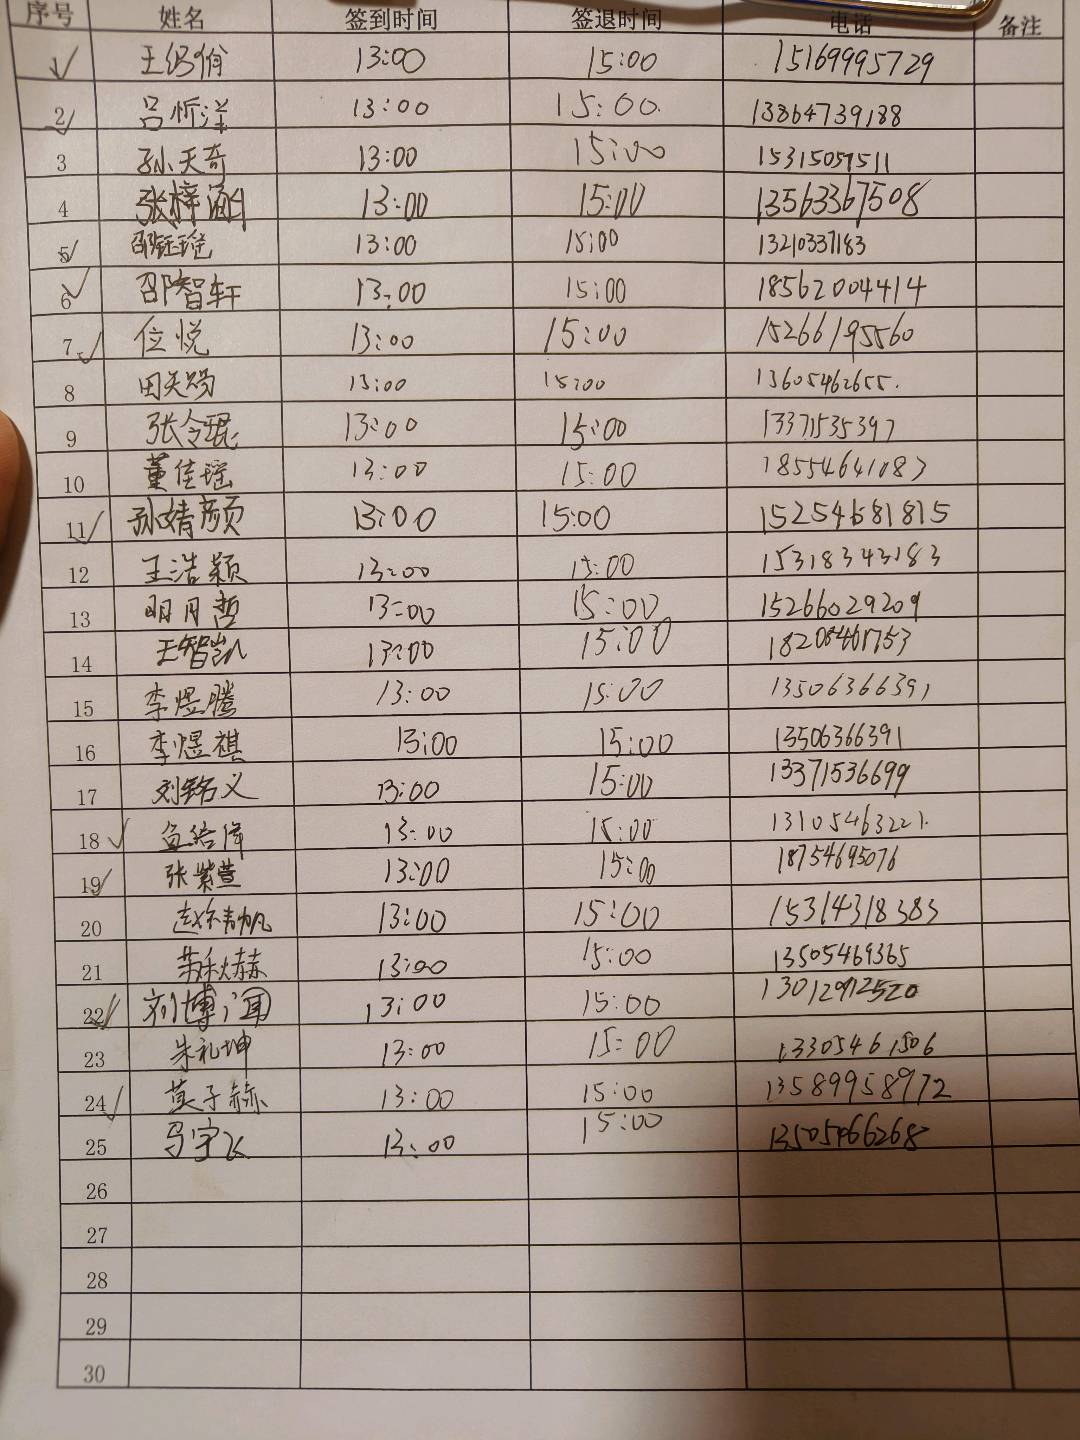 序号 姓名 签到时间 签退时间 电话 备注
王 13:00 15:00 15169995729
2 吕忻洋 13:00 15:00 13864739188
3 孙天奇 13:00 15:00
4 张梓涵 13:00 15:00 13563367508
5 邵钰瑄 13:00 15:00 13210337183
6 邵智轩 13:00 15:00 18562004414
7 位悦 13:00 15:00 15266195560
8 田天 13:00 15:00 13605462655
9 张令琨 13:00 15:00 13371535397
10 董佳瑶 13:00 15:00 18554641083
11 孙婧颜 13:00 15:00 15254681815
12 王浩颖 13:00 15:00 15318343183
13 明月哲 13:00 15:00 15266029209
14 王智凯 13:00 15:00
15 李煜腾 13:00 15:00 13506366391
16 李煜祺 13:00 15:00 13506366391
17 刘铭义 13:00 15:00 13371536699
18 13:00 15:00 13105463221
19 张紫萱 13:00 15:00 18754695076
20 赵 帆 13:00 15:00 15314318383
21 13:00 15:00 13505469365
22 刘博闻 13:00 15:00
23 朱礼坤 13:00 15:00 13305461506
24 子赫 13:00 15:00 13589958972
25 马宇飞 13:00 15:00
26
27
28
29
30